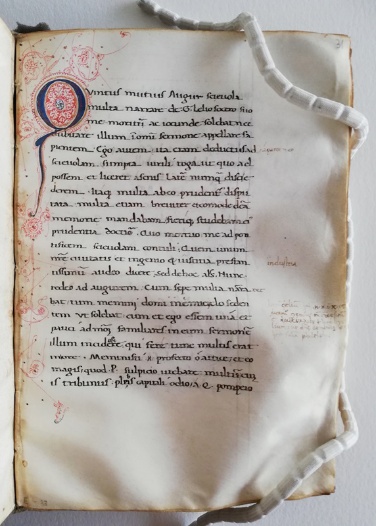 Quintus mutius Augur scevola
multa narrare de C. lelio socero suo
me moriter ac iocunde solebat nec
dubitare illum in omni sermone appellare sa
pientem. Ego autem ita eram deductus ad
scevolam sumpta virili toga ut quo ad
possem et liceret a senis latere numquam discede
derem. Itaque multa ab eo prudenter dispu
tata multa etiam breviter et commode dicta
memorie mandabam fierique studebam eius
prudentia doctior. Quo mortuo me ad pon
tificem scevolam contuli. Quem unum
nostre civitatis et ingenio et iustitia prestan
tissimum audeo dicere sed de hoc alias. Nunc
redeo ad augurem. Cum sepe multa narra
bat tum memini domi in emiciclo seden
tem ut solebat cum et ego essem una et
pauci admodum familiares in eum sermonem
illum incidere qui fere tunc multis erat
in ore. Meministi profecto attice et eo
magis quod P. sulpicio utebare multum cum
is tribunus plebis capitali odio a Q. pompeio